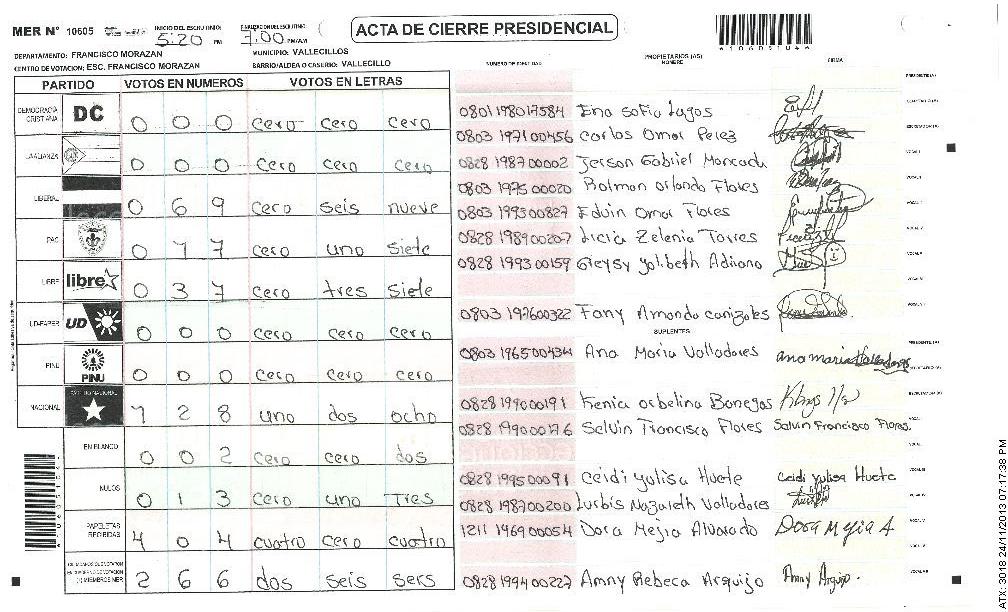 MER Nº 10605 INICIO DEL ESCRUTINIO: 5:20 PM FINALIZACION DEL ESCRUTINIO: 7:00 PM/AM ACTA DE CIERRE PRESIDENCIAL
DEPARTAMENTO: FRANCISCO MORAZAN MUNICIPIO: VALLECILLOS
CENTRO DE VOTACION: ESC. FRANCISCO MORAZAN BARRIO/ALDEA O CASERIO: VALLECILLO
NUMERO DE IDENTIDAD PROPIETARIOS (AS) NOMBRE FIRMA
PARTIDO VOTOS EN NUMEROS VOTOS EN LETRAS
DEMOCRACIA CRISTIANA DC 0 0 0 cero cero cero
LA ALIANZA 0 0 0 cero cero cero
LIBERAL 0 6 9 cero seis nueve
PAC 0 1 7 cero uno siete
LIBRE libre 0 3 7 cero tres siete
UD-FAPER UD 0 0 0 cero cero cero
PINU PINU 0 0 0 cero cero cero
NACIONAL PARTIDO NACIONAL 1 2 8 uno dos ocho
EN BLANCO 0 0 2 cero cero dos
NULOS 0 1 3 cero uno Tres
PAPELETAS RECIBIDAS 4 0 4 cuatro cero cuatro
2 6 6 dos seis seis
0801198017584 Ena Sofia Lagos
0803 197100456 Carlos Omar Perez
0828 198700002 Jerson Gabriel Moncada
0803 197500020 Rolman Orlando Flores
0803 199300827 Edwin Omar Flores
0828 198900207 Licia Zelenia Torres
0828 199300159 Greysy Yolibeth Adriano
0803 197600322 Fany Amanda canizales
SUPLENTES
0803 196500434 Ana Maria Valladares ana maria Valladares
0828 199000191 Kenia orbelina Banegas
0828 199000176 Selvin Francisco Flores Selvin Francisco Flores.
0828 199500091 Ceidi yulisa Huete Ceidi yulisa Huete
0828 198700200 Lurbis Nazareth Valladares
1211 196900054 Dora Mejia Alvarado Dora Mejia A
0828 199400227 Amny Rebeca Arquijo Amny Arquijo.
ATX-3018 24/11/2013 07:17:38 PM